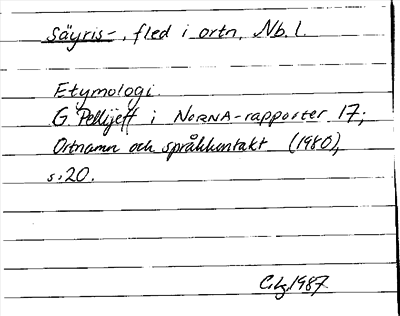 Säyris-, fled i ortn. Nb. l.
Etymologi.
G. Pellijeff i NORNA-rapporter 17;
Ortnamn och språkkontakt (1980),
s. 20.
1987